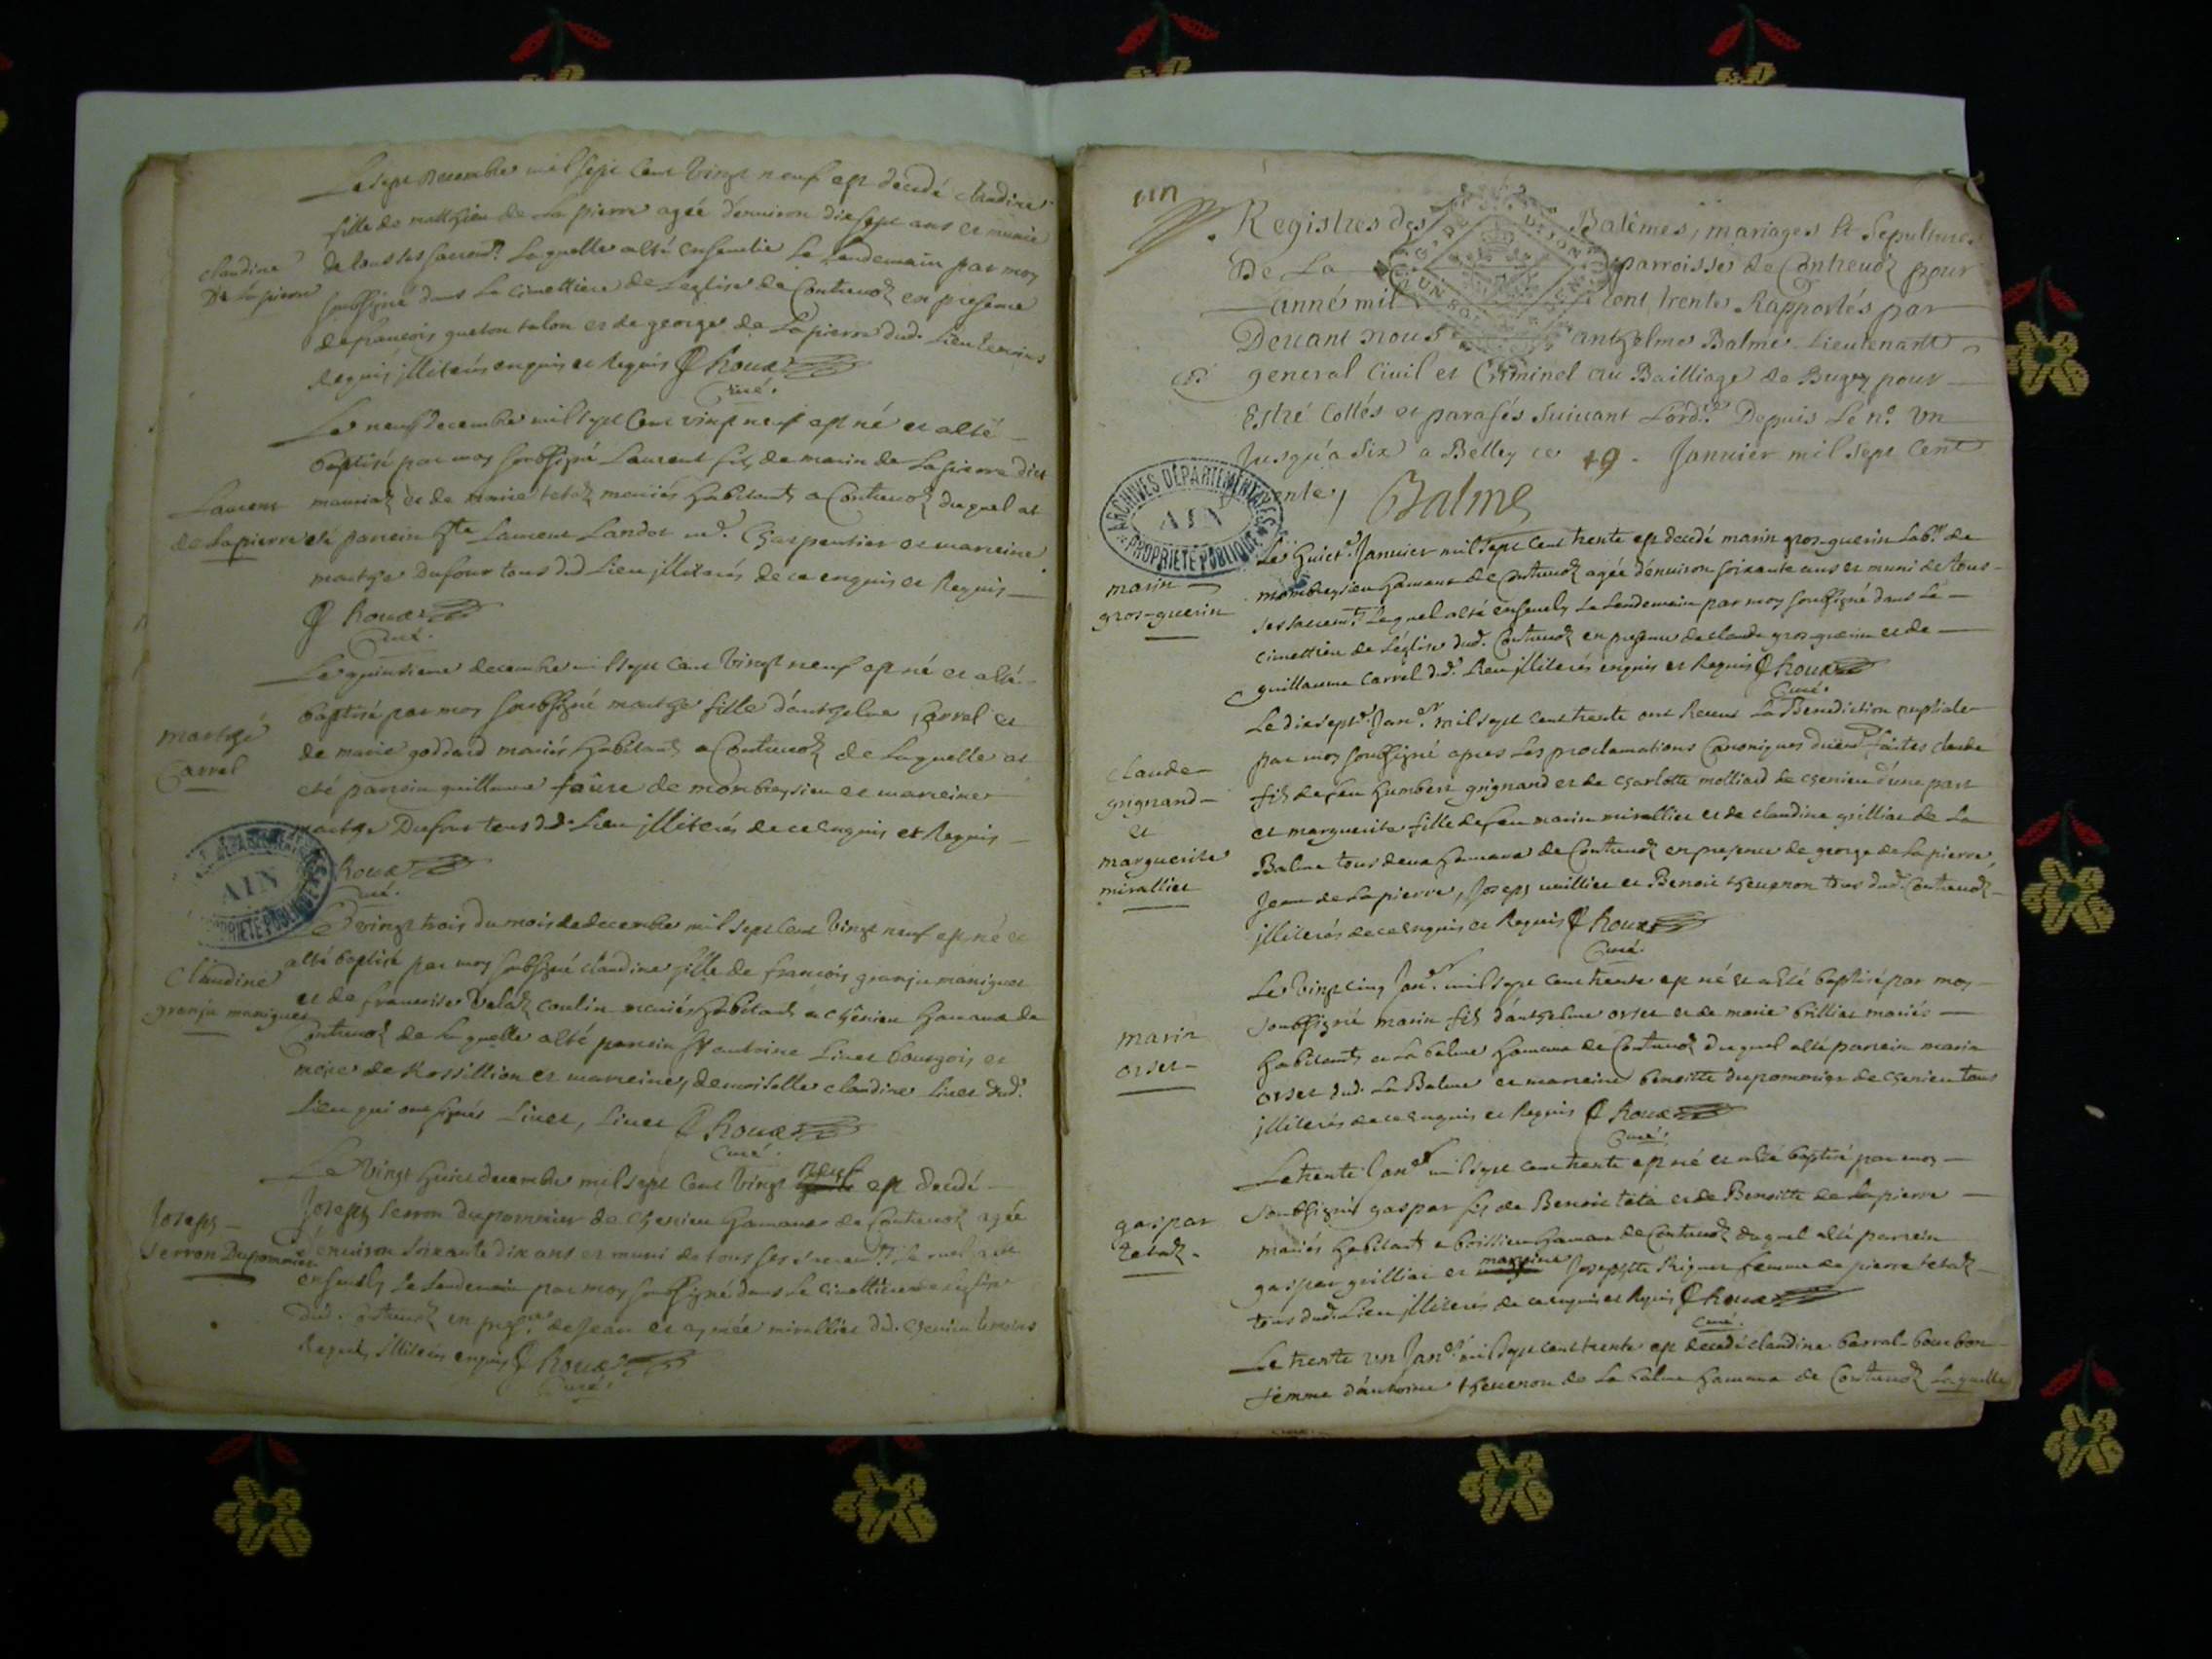 Le sept decembre mil sept cent vingt neuf est decedé claudine
fille de matthieu de la pierre agée d'environ dix sept ans et munie
claudine De la pierre
de tous ses sacremts laquelle a été ensevelie le lendemain par moy
soussigné dans la cimettiere de leglise de Contrevoz en presence
de francois gueton talon et de george de la pierre dud. Lieu temoins
requis illiterés enquis et Requis Roux
Curé.
Le neuf decembre mil sept cent vingt neuf est né et a esté
baptisé par moy soubsigné Laurent fils de marin de Lapierre dict
Laurent de Lapierre
mauriaz et de marie tetaz mariés habitants a Contrevoz duquel at
eté parrein Laurent Landot md. Charpentier et marreine
marthe Dufour tous dud Lieu illiterés de ce enquis et Requis
Roux
Curé.
Le quinsieme decembre mil sept cent vingt neuf est né et a été
baptisé par moy soubsigné marthe fille d'anthelme Carrel et
marthe Carrel
de marie goddard mariés habitants a Contrevoz de Laquelle at
eté parrein guillaume faure de montbreysieu et marreine
marthe Dufour tous dud. Lieu illiterés de ce enquis et Requis
Roux
Curé.
ARCHIVES DÉPARTEMENTALES AIN PROPRIÉTÉ PUBLIQUE
Le vingt trois du mois de decembre mil sept cent vingt neuf est né et
a été baptisé par moy soubsigné claudine fille de francois granju maniguet
Claudine granju maniguet
et de francoise Velaz coulin mariés habitants a Chênieu hameau de
Contrevoz de Laquelle a été parrein Sr antoine Livet bourgois et
maire de Rossillion et marreine demoiselle claudine Livet dud.
Lieu qui ont signés Livet, Livet Roux
Curé.
Le Vingt huict decembre mil sept cent vingt neuf est decedé
Joseph Serron Dupommier
Joseph serron dupommier de chenieu hameau de Contrevoz agée
d'environ soixante dix ans et muni de tous ses sacremts Lequel a été
ensevely le lendemain par moy soubsigné dans le cimettiere de leglise
dud. Contrevoz en presce de Jean et aymée mirallier dud. chenieu temoins
Requis illiterés enquis Roux
Curé.
un
Registres des Batêmes, mariages et Sepultures
De La parroisse de Contrevoz pour
anné mil cent trente Rapportés par
Devant nous anthelme Balme Lieutenant
general Civil et Criminel au Bailliage de Bugey pour
Estré Cottés et parafés suivant L'ordce Depuis Le no. Un
Jusqu'a six a Belley ce 19. Janvier mil sept Cent
trente / Balme
ARCHIVES DÉPARTEMENTALES AIN PROPRIÉTÉ PUBLIQUE
Le huict Janvier mil sept cent trente est decedé marin gros-guerin Labr. de
marin gros-guerin
montbreysieu hameau de Contrevoz agée d'environ soixante ans et muni de tous
ses sacremts Lequel a été ensevely Le Lendemain par moy soubsigné dans Le
cimettiere de l'église dud. Contrevoz en presence de claude gros-guerin et de
guillaume Carrel dud. Lieu illiterés enquis et Requis Roux
Curé.
Le dixsept Janer mil sept cent trente ont Receus La Benediction nuptiale
par moy soubsigné apres Les proclamations Canoniques faites claude
claude grignand et marguerite mirallier
fils de feu humbert grignand et de charlotte molliard de chenieu d'une part
et marguerite fille de feu marin mirallier et de claudine grilliat de La
Balme tous deux hameaux de Contrevoz en presence de george de la pierre,
Jean de La pierre, Joseph et Benoit thevenon tous dud. Contrevoz
illiterés de ce enquis et Requis Roux
Curé.
Le vingt cinq Janr. mil sept cent trente est né et a été baptisé par moy
soubsigné marin fils d'anthelme orset et de marie brilliat mariés
marin orset
habitants a La balme hameau de Contrevoz duquel a été parrein marin
orset dud. La Balme et marreine benoitte dupommier de chenieu tous
illiterés de ce enquis et Requis Roux
Curé.
Le trente Janer mil sept cent trente est né et a été baptisé par moy
soubsigné gaspar fils de Benoit teta et de Benoitte de La pierre
gaspar tetaz
mariés habitants a boissieu hameau de Contrevoz duquel a été parrein
gaspar grilliat et marreine Josephte Riguet femme de pierre tetaz
tous dud. Lieu illiterés de ce enquis et Requis Roux
Curé.
Le trente un Janer mil sept cent trente est decedé claudine barral-bourbon
femme d'antoine thevenon de La balme hameau de Contrevoz Laquelle